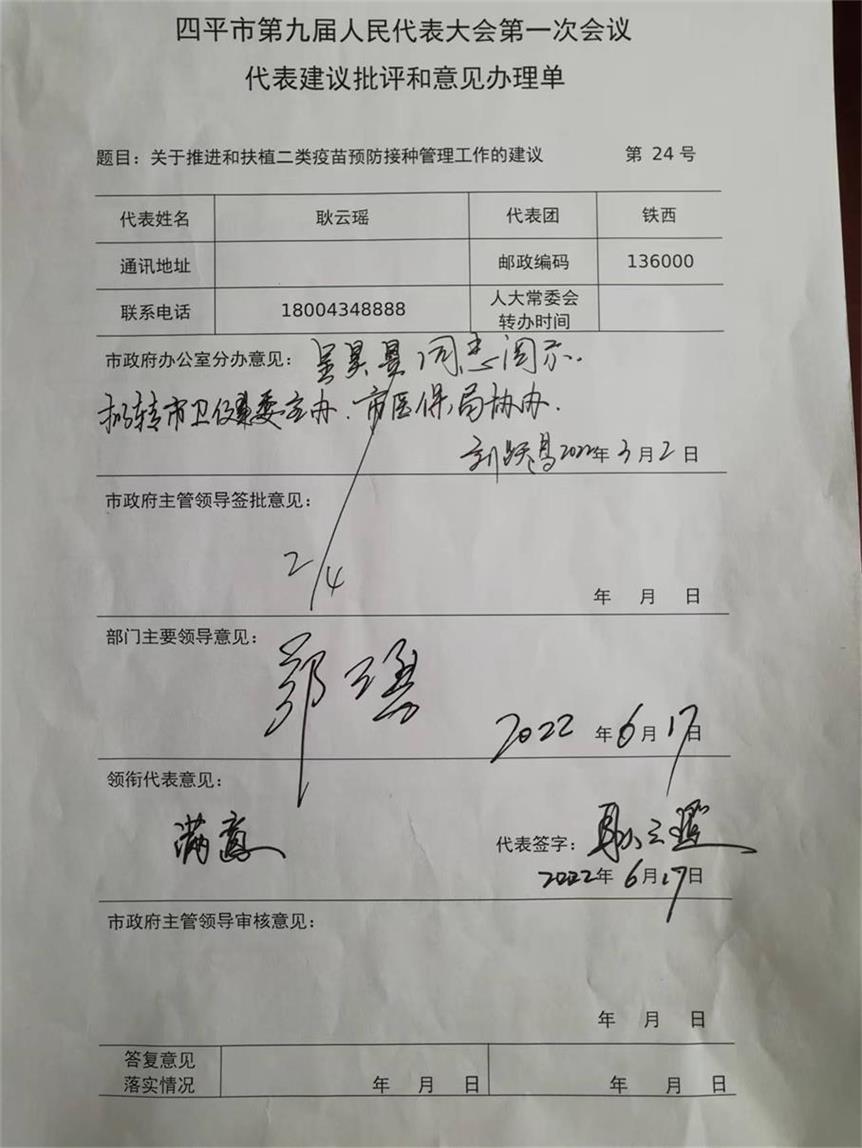 四平市第九届人民代表大会第一次会议
代表建议批评和意见办理单
题目：关于推进和扶植二类疫苗预防接种管理工作的建议 第 24 号
代表姓名 耿云瑶 代表团 铁西
通讯地址 邮政编码 136000
联系电话 18004348888 人大常委会
转办时间
市政府办公室分办意见：呈昊 同志阅示.
拟转市卫健委主办.市医保局协办.
刘跃 2022年3月2日
市政府主管领导签批意见：
2/4
年 月 日
部门主要领导意见：
2022年6月17日
领衔代表意见：
满意
代表签字：耿云瑶
2022年6月17日
市政府主管领导审核意见：
年 月 日
答复意见
落实情况 年 月 日 年 月 日